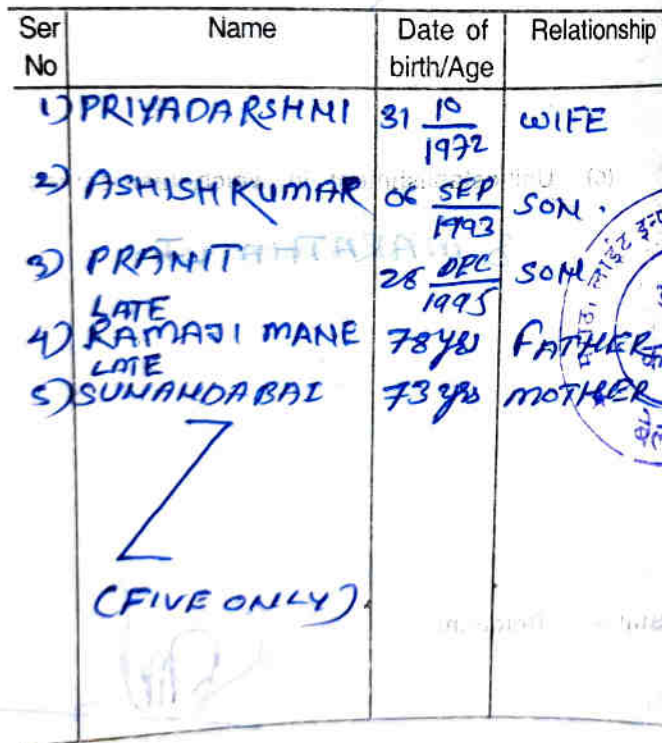 Ser No Name Date of birth/Age Relationship
1) PRIYADARSHNI 31 10/1972 WIFE
2) ASHISH KUMAR 06 SEP/1993 SON.
3) PRANIT 28 DEC/1995 SON
4) LATE RAMAJI MANE 78 yrs FATHER
5) LATE SUNANDABAI 73 yrs MOTHER
(FIVE ONLY).
लाईट